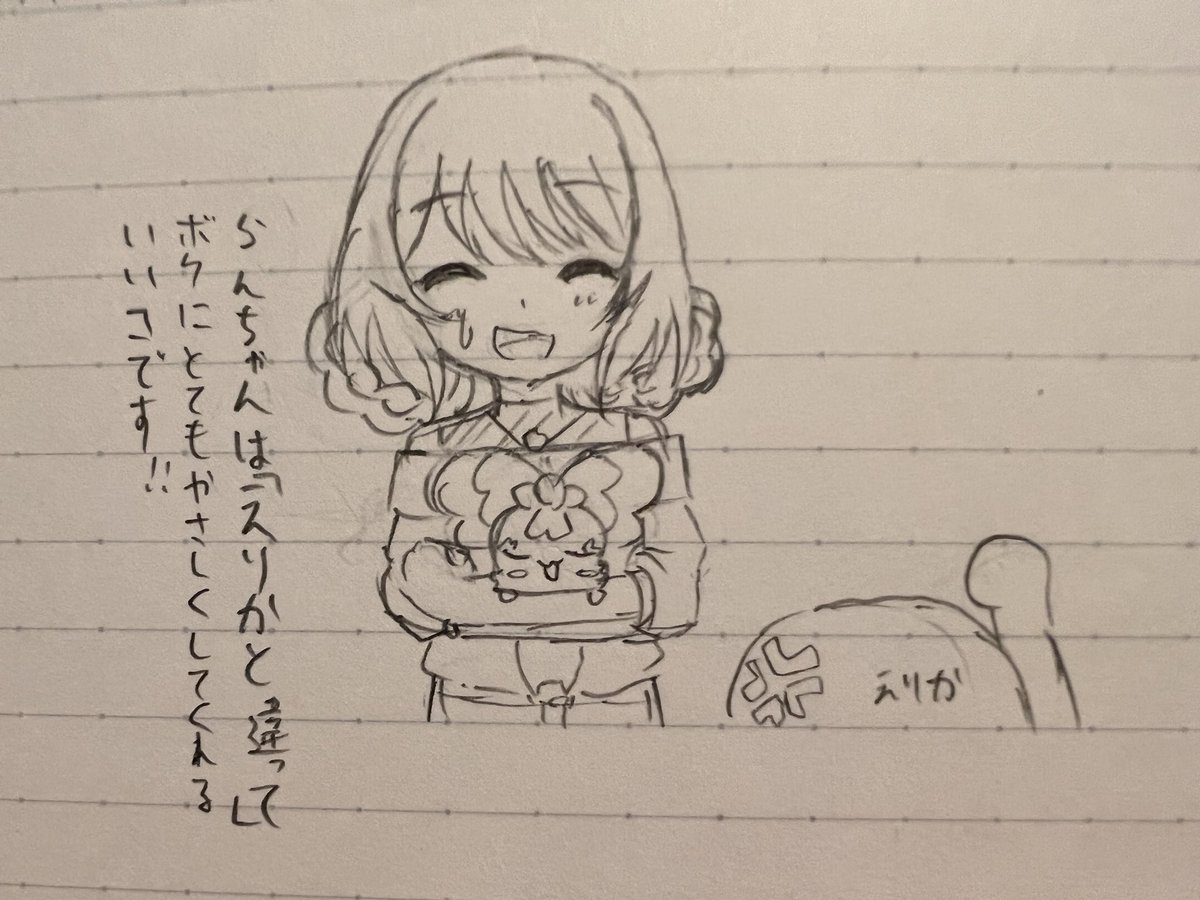 らんちゃんは「えりかと違って」
ボクにとてもやさしくしてくれる
いいコです!!
えりか